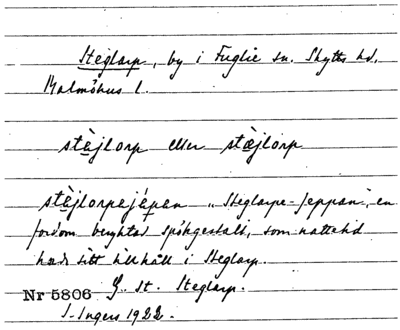 Steglarp, by i Fuglie sn. Skytts hd,
Malmöhus l.
stàjlorp eller stæ̀jlorp
stàjlorpajápan "Steglarps-Jeppan", en
fordom beryktad spökgestalt, som nattetid
hade sitt tillhåll i Steglarp.
Nr 5806 G. St. Steglarp.
I. Ingers 1922.